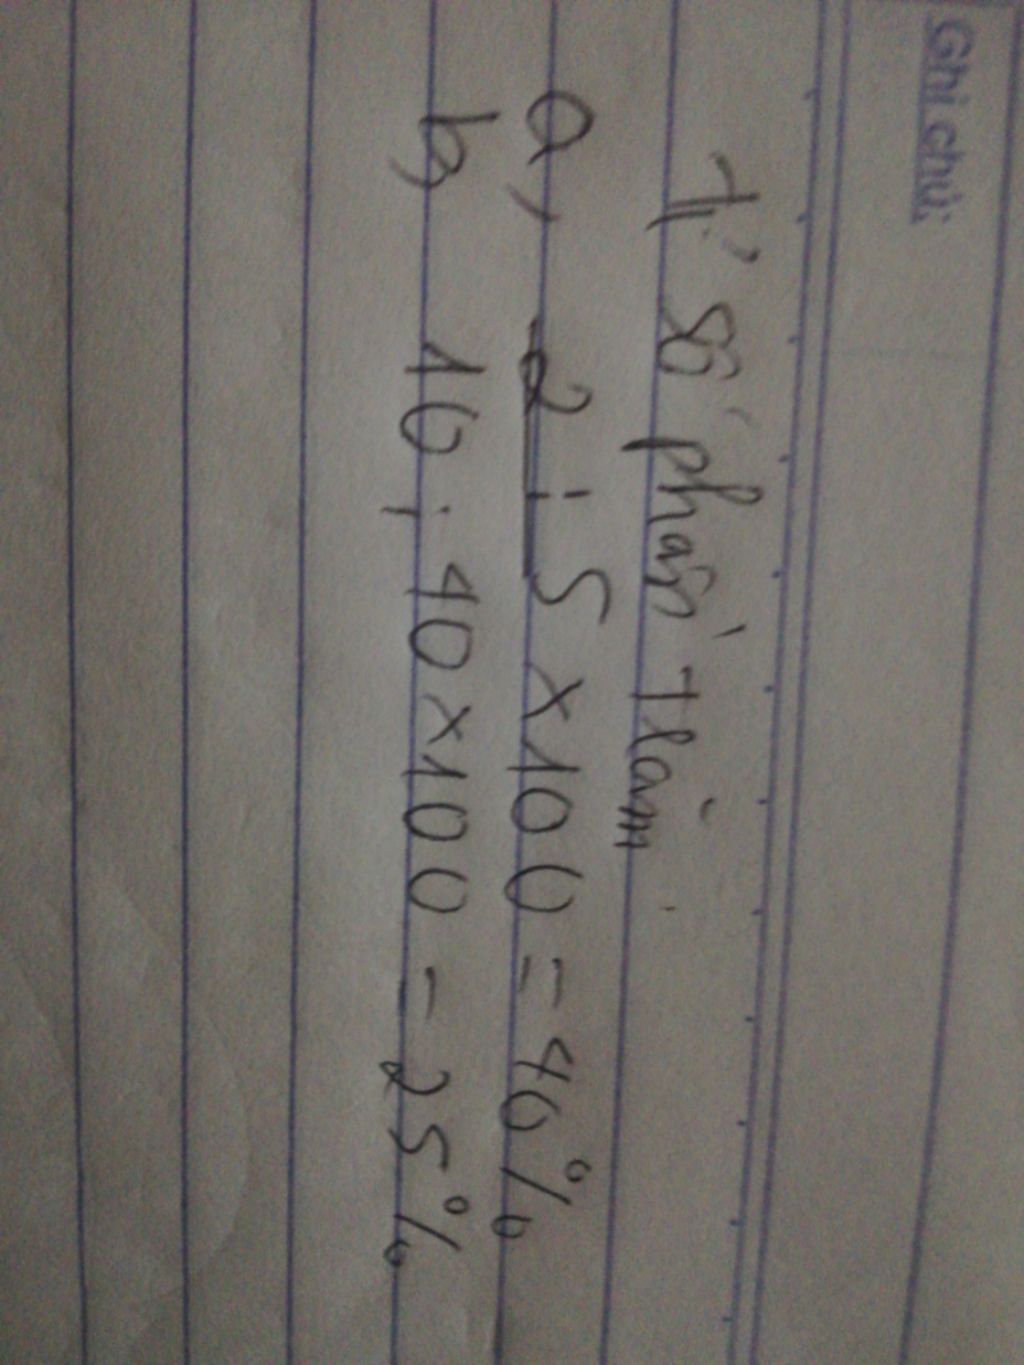 Ghi chú:
Tỉ số phần trăm
a, 2 : 5 x 100 = 40%
b, 10 : 40 x 100 = 25%